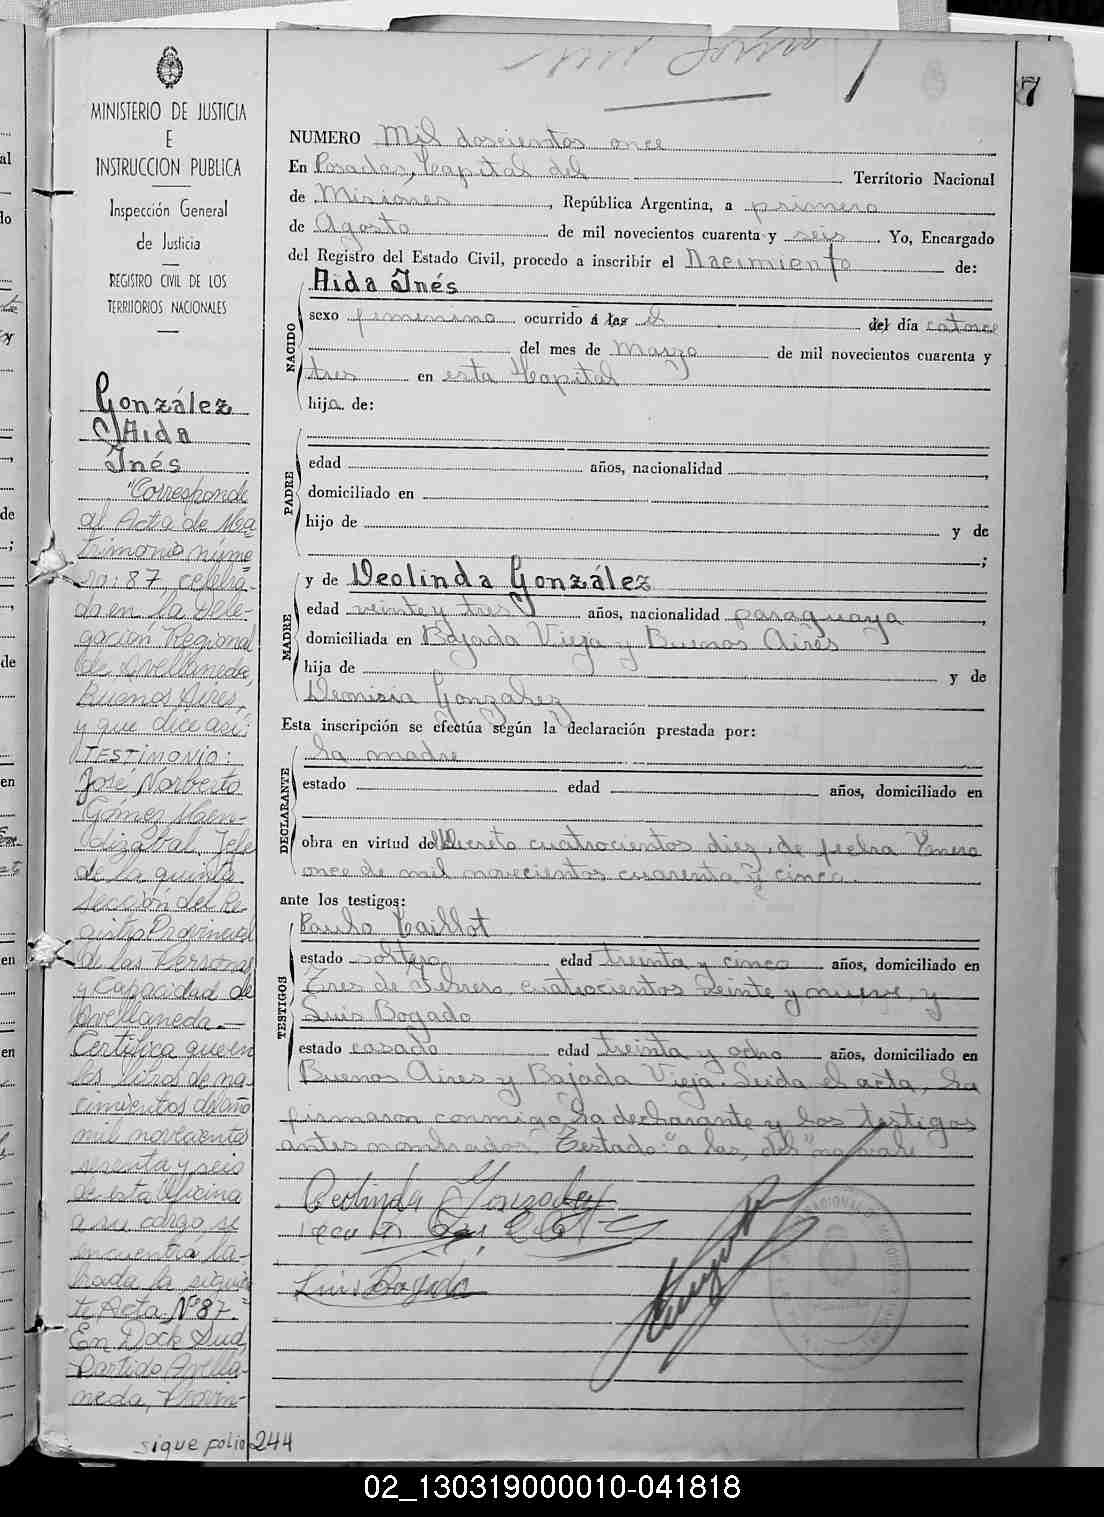 7
MINISTERIO DE JUSTICIA
E
INSTRUCCION PUBLICA
Inspección General
de Justicia
REGISTRO CIVIL DE LOS
TERRITORIOS NACIONALES
González
Aida
Inés
"Corresponde
al Acta de Ma
trimonio núme
ro: 87, celebra-
da en la Dele-
gación Regional
de Avellaneda,
Buenos Aires,
y que dice así:
TESTIMONIO:
José Norberto
Gómez
Jefe
de la quinta
sección del Re-
gistro Provincial
de las Personas
y Capacidad de
Avellaneda.—
Certifica que en
los libros de na-
cimientos del año
mil novecientos
sesenta y seis
de esta Oficina
a su cargo se
encuentra la-
brada la siguien
te Acta: Nº 87.=
En Dock Sud,
Partido Avella-
neda, Provin-
sigue folio 244
NUMERO Mil doscientos once
En Posadas, Capital del Territorio Nacional
de Misiones, República Argentina, a primero
de Agosto de mil novecientos cuarenta y seis. Yo, Encargado
del Registro del Estado Civil, procedo a inscribir el Nacimiento de:
NACIDO
Aida Inés
sexo femenino ocurrido á las el del día catorce
del mes de Marzo de mil novecientos cuarenta y
tres en esta Capital
hija de:
PADRE
edad años, nacionalidad
domiciliado en
hijo de y de
;
MADRE
y de Deolinda González
edad veinte y tres años, nacionalidad paraguaya,
domiciliada en Bajada Vieja y Buenos Aires
hija de y de
Dionisia Gonzalez
Esta inscripción se efectúa según la declaración prestada por:
DECLARANTE
La madre
estado edad años, domiciliado en
obra en virtud del Decreto cuatrocientos diez, de fecha Enero
once de mil novecientos cuarenta y cinco.
ante los testigos:
TESTIGOS
Paulo Caillot
estado soltero edad treinta y cinco años, domiciliado en
Tres de Febrero, cuatrocientos veinte y nueve, y
Luis Bogado
estado casado edad treinta y ocho años, domiciliado en
Buenos Aires y Bajada Vieja. Leida el acta, la
firmaron conmigo la declarante y los testigos
antes nombrados. Testado: "a las, del" no vale
Deolinda Gonzalez
Luis Bogado
02_130319000010-041818